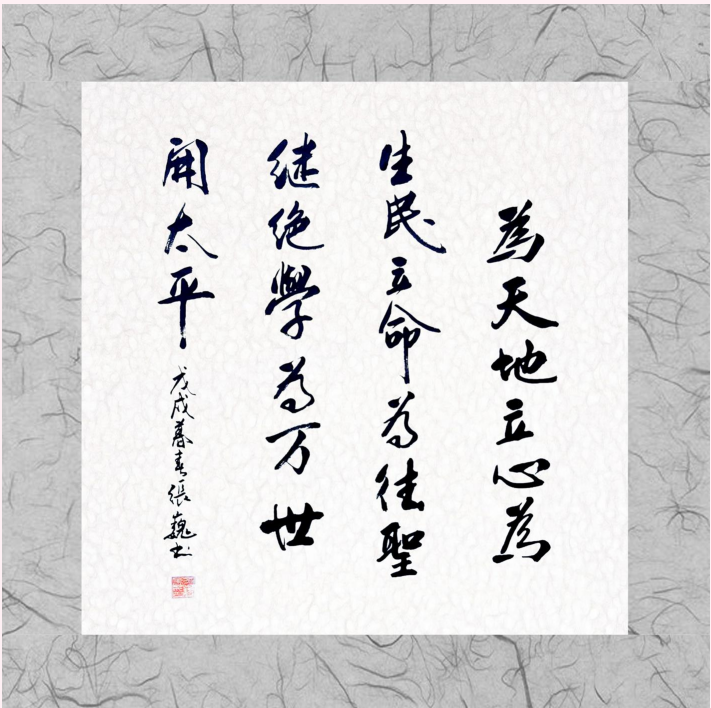 為天地立心為
生民立命為往聖
继绝學為万世
開太平
戊戌暮春張巍书